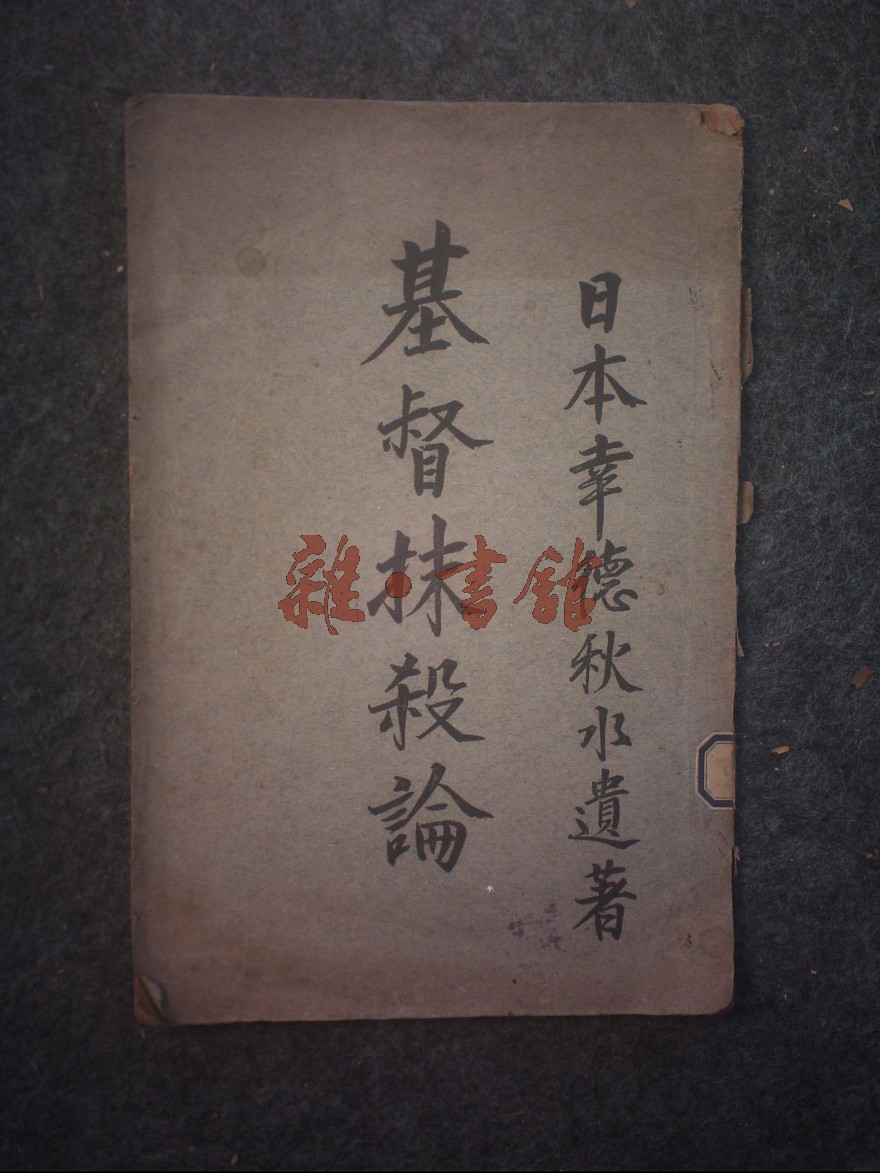 日本幸德秋水遺著
基督抹殺論
雜·書館